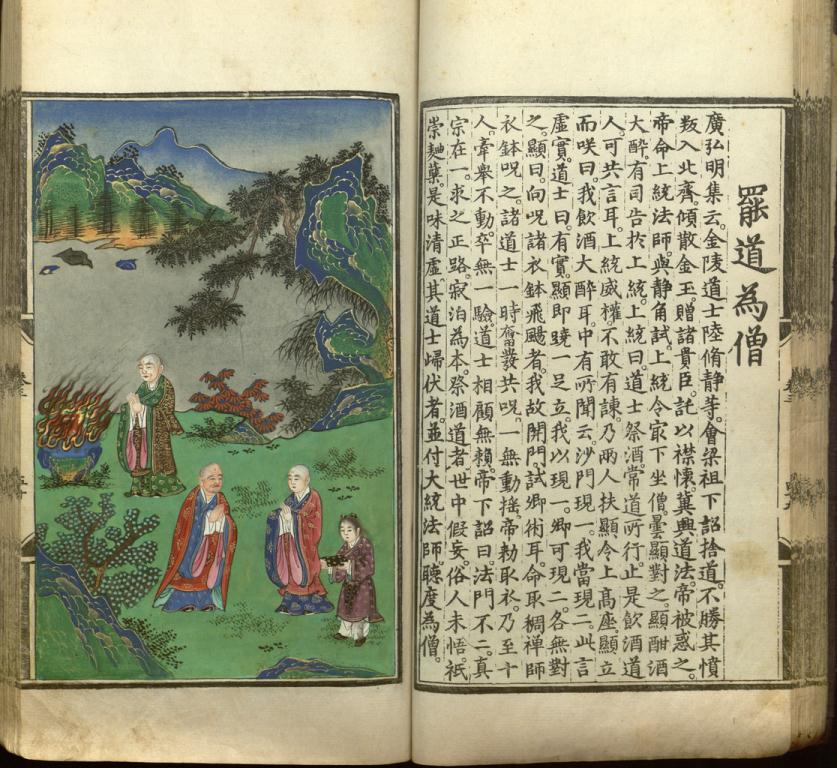 罷道為僧
廣弘明集云。金陵道士陸脩靜等。會梁祖下詔捨道。不勝其憤
叛入北齊。傾散金玉。贈諸貴臣。託以襟懷。冀興道法。帝被惑之。
帝命上統法師。與靜角試。上統令㝡下坐僧。曇顯對之。顯酣酒
大醉。有司告於上統。上統曰。道士祭酒。常道所行。止是飲酒道
人。可共言耳。上統威權。不敢有諫。乃兩人扶顯令上高座。顯立
而咲曰。我飲酒大醉耳。中有所聞云。沙門現一。我當現二。此言
虛實。道士曰。有實。顯即蹺一足立。我以現一。卿可現二。各無對
之。顯曰。向呪諸衣鉢飛颺者。我故開門。試卿術耳。命取稠禪師
衣鉢呪之。諸道士一時奮發共呪。一無動搖。帝勑取衣。乃至十
人。牽舉不動。卒無一驗。道士相顧無賴。帝下詔曰。法門不二。真
宗在一。求之正路。寂泊為本。祭酒道者。世中假妄。俗人未悟。祇
崇麯蘖。是味清虛。其道士歸伏者。並付大統法師。聽度為僧。